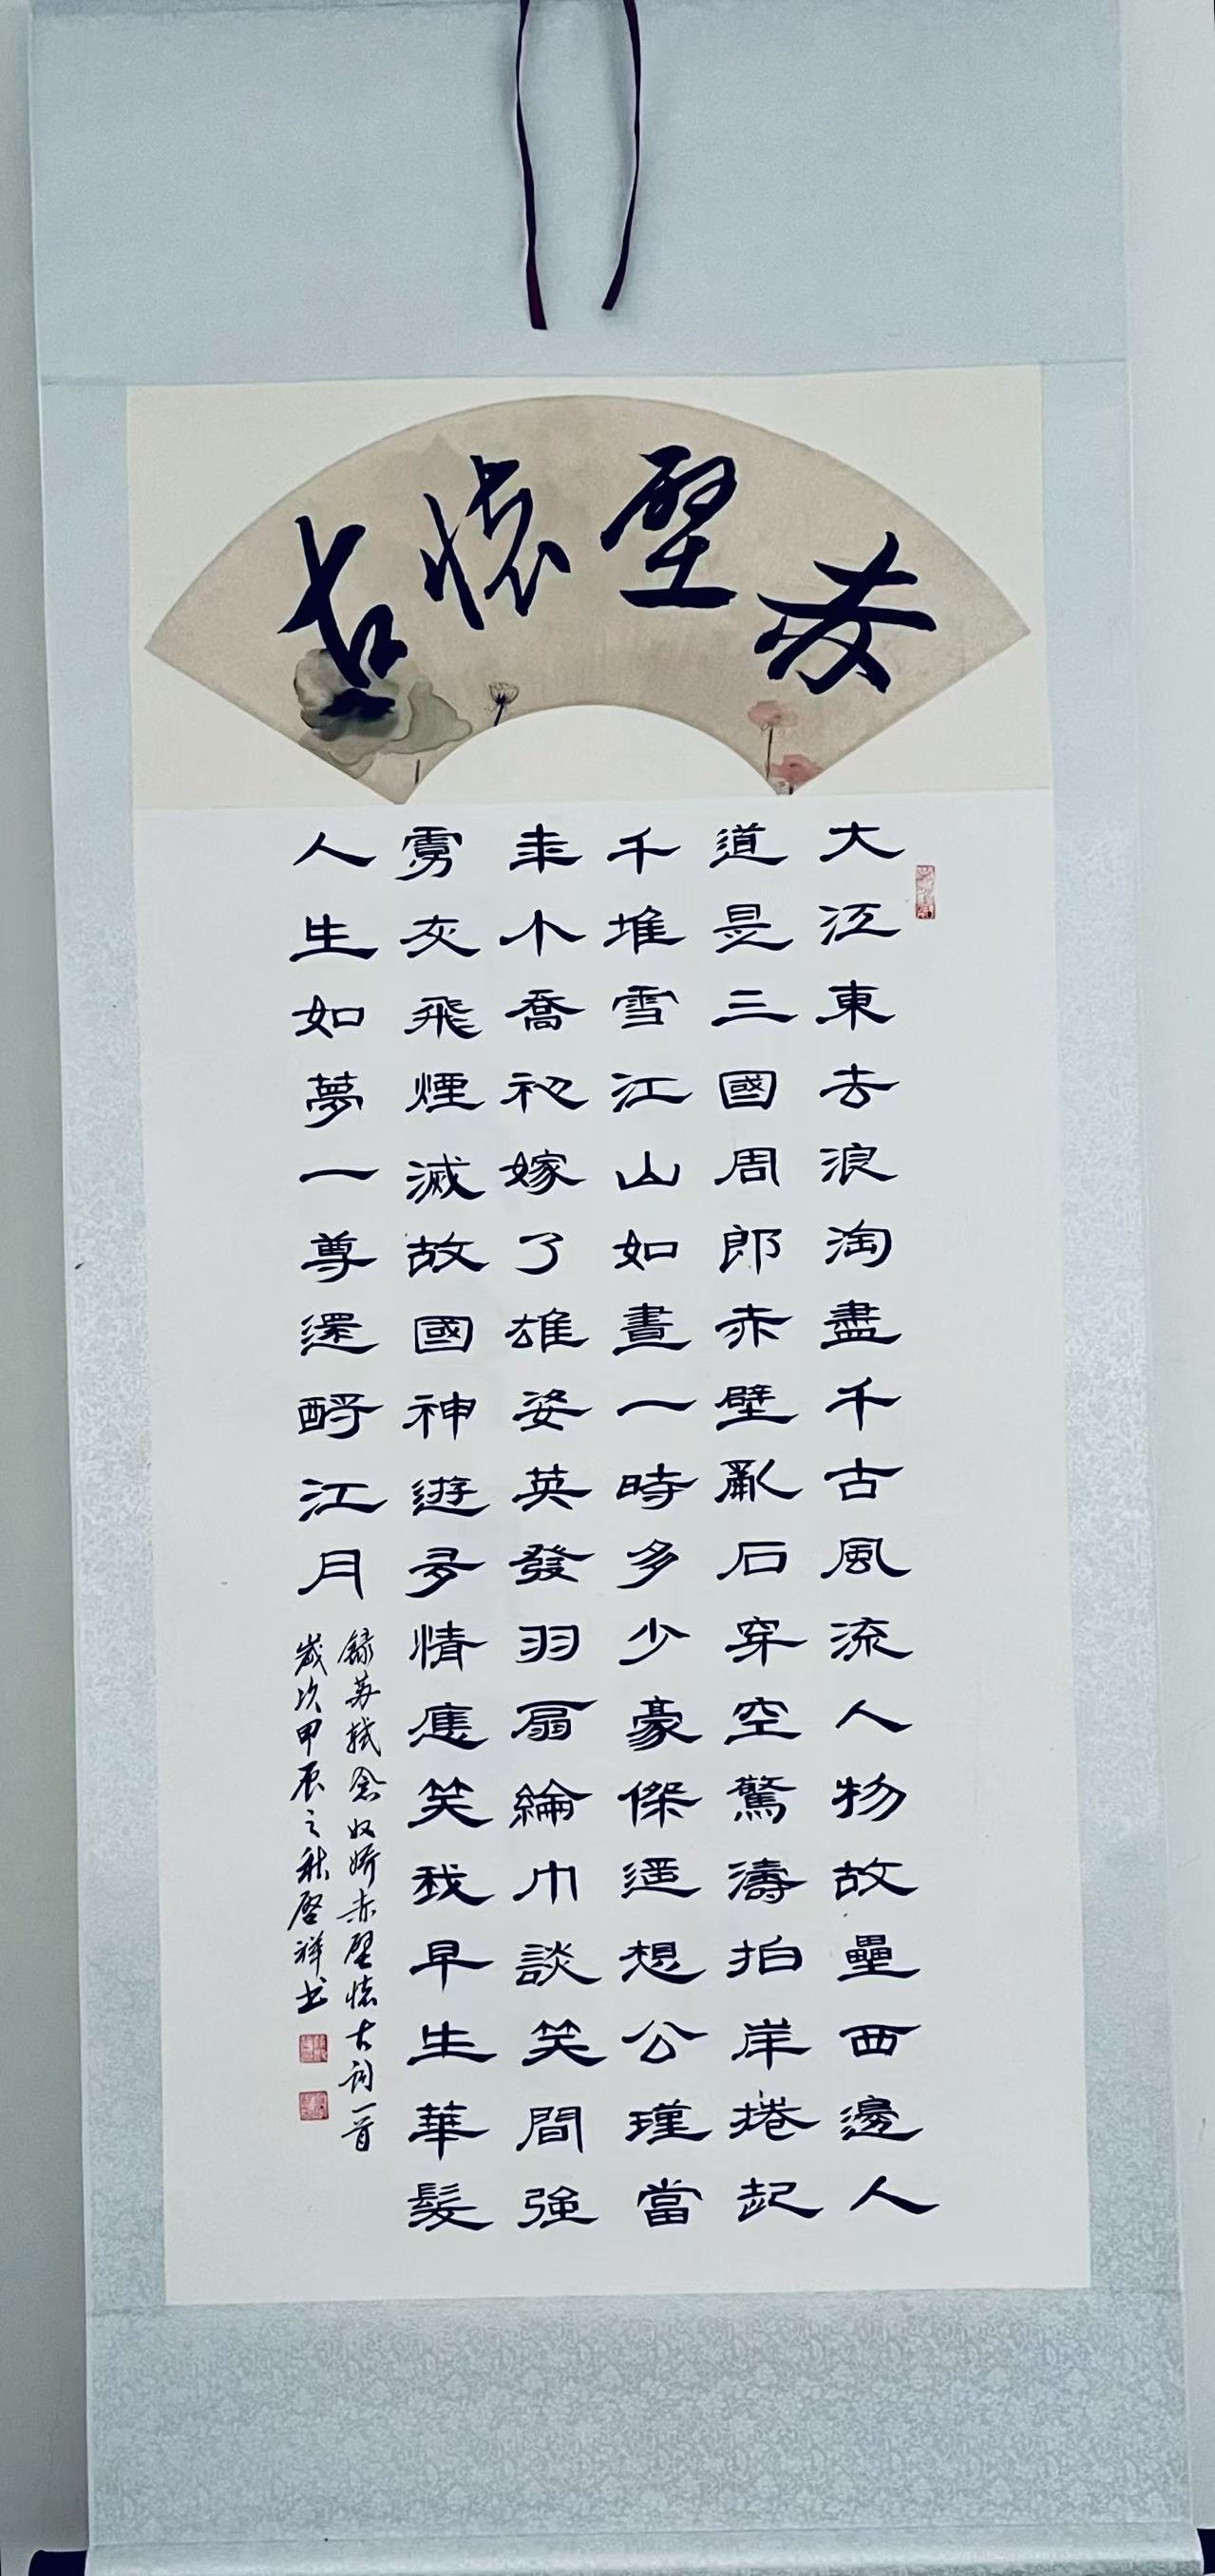 赤壁懷古
大江東去浪淘盡千古風流人物故壘西邊人
道是三國周郎赤壁亂石穿空驚濤拍岸捲起
千堆雪江山如畫一時多少豪傑遥想公瑾當
年小喬初嫁了雄姿英發羽扇綸巾談笑間強
虜灰飛煙滅故國神遊多情應笑我早生華髮
人生如夢一尊還酹江月
錄苏軾念奴嬌赤壁懷古词一首
歲次甲辰之秋啓祥书